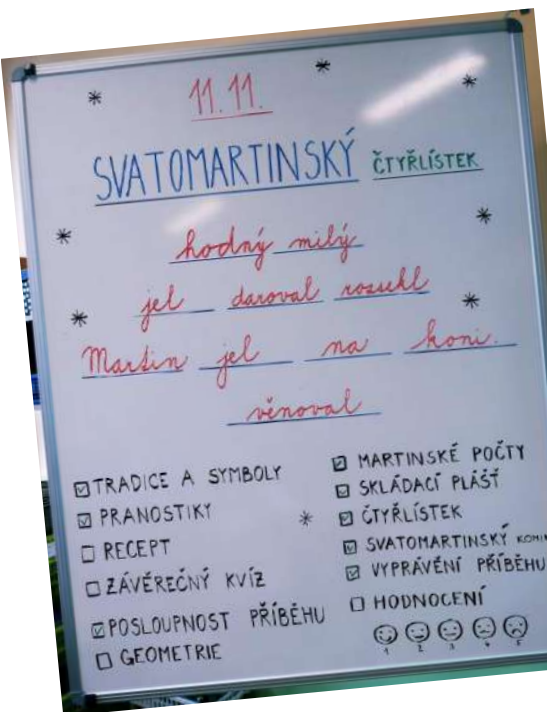 11.11.
SVATOMARTINSKÝ ČTYŘLÍSTEK
hodný milý
jel daroval rozsekl
Martin jel na koni.
věnoval
TRADICE A SYMBOLY
PRANOSTIKY
RECEPT
ZÁVĚREČNÝ KVÍZ
POSLOUPNOST PŘÍBĚHU
GEOMETRIE
MARTINSKÉ POČTY
SKLÁDACÍ PLÁŠŤ
ČTYŘLÍSTEK
SVATOMARTINSKÝ
VYPRÁVĚNÍ PŘÍBĚHU
HODNOCENÍ
1 2 3 4 5